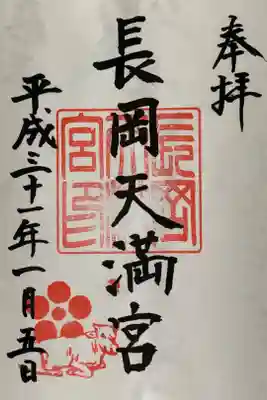 奉拝
長岡天満宮
平成三十一年一月五日